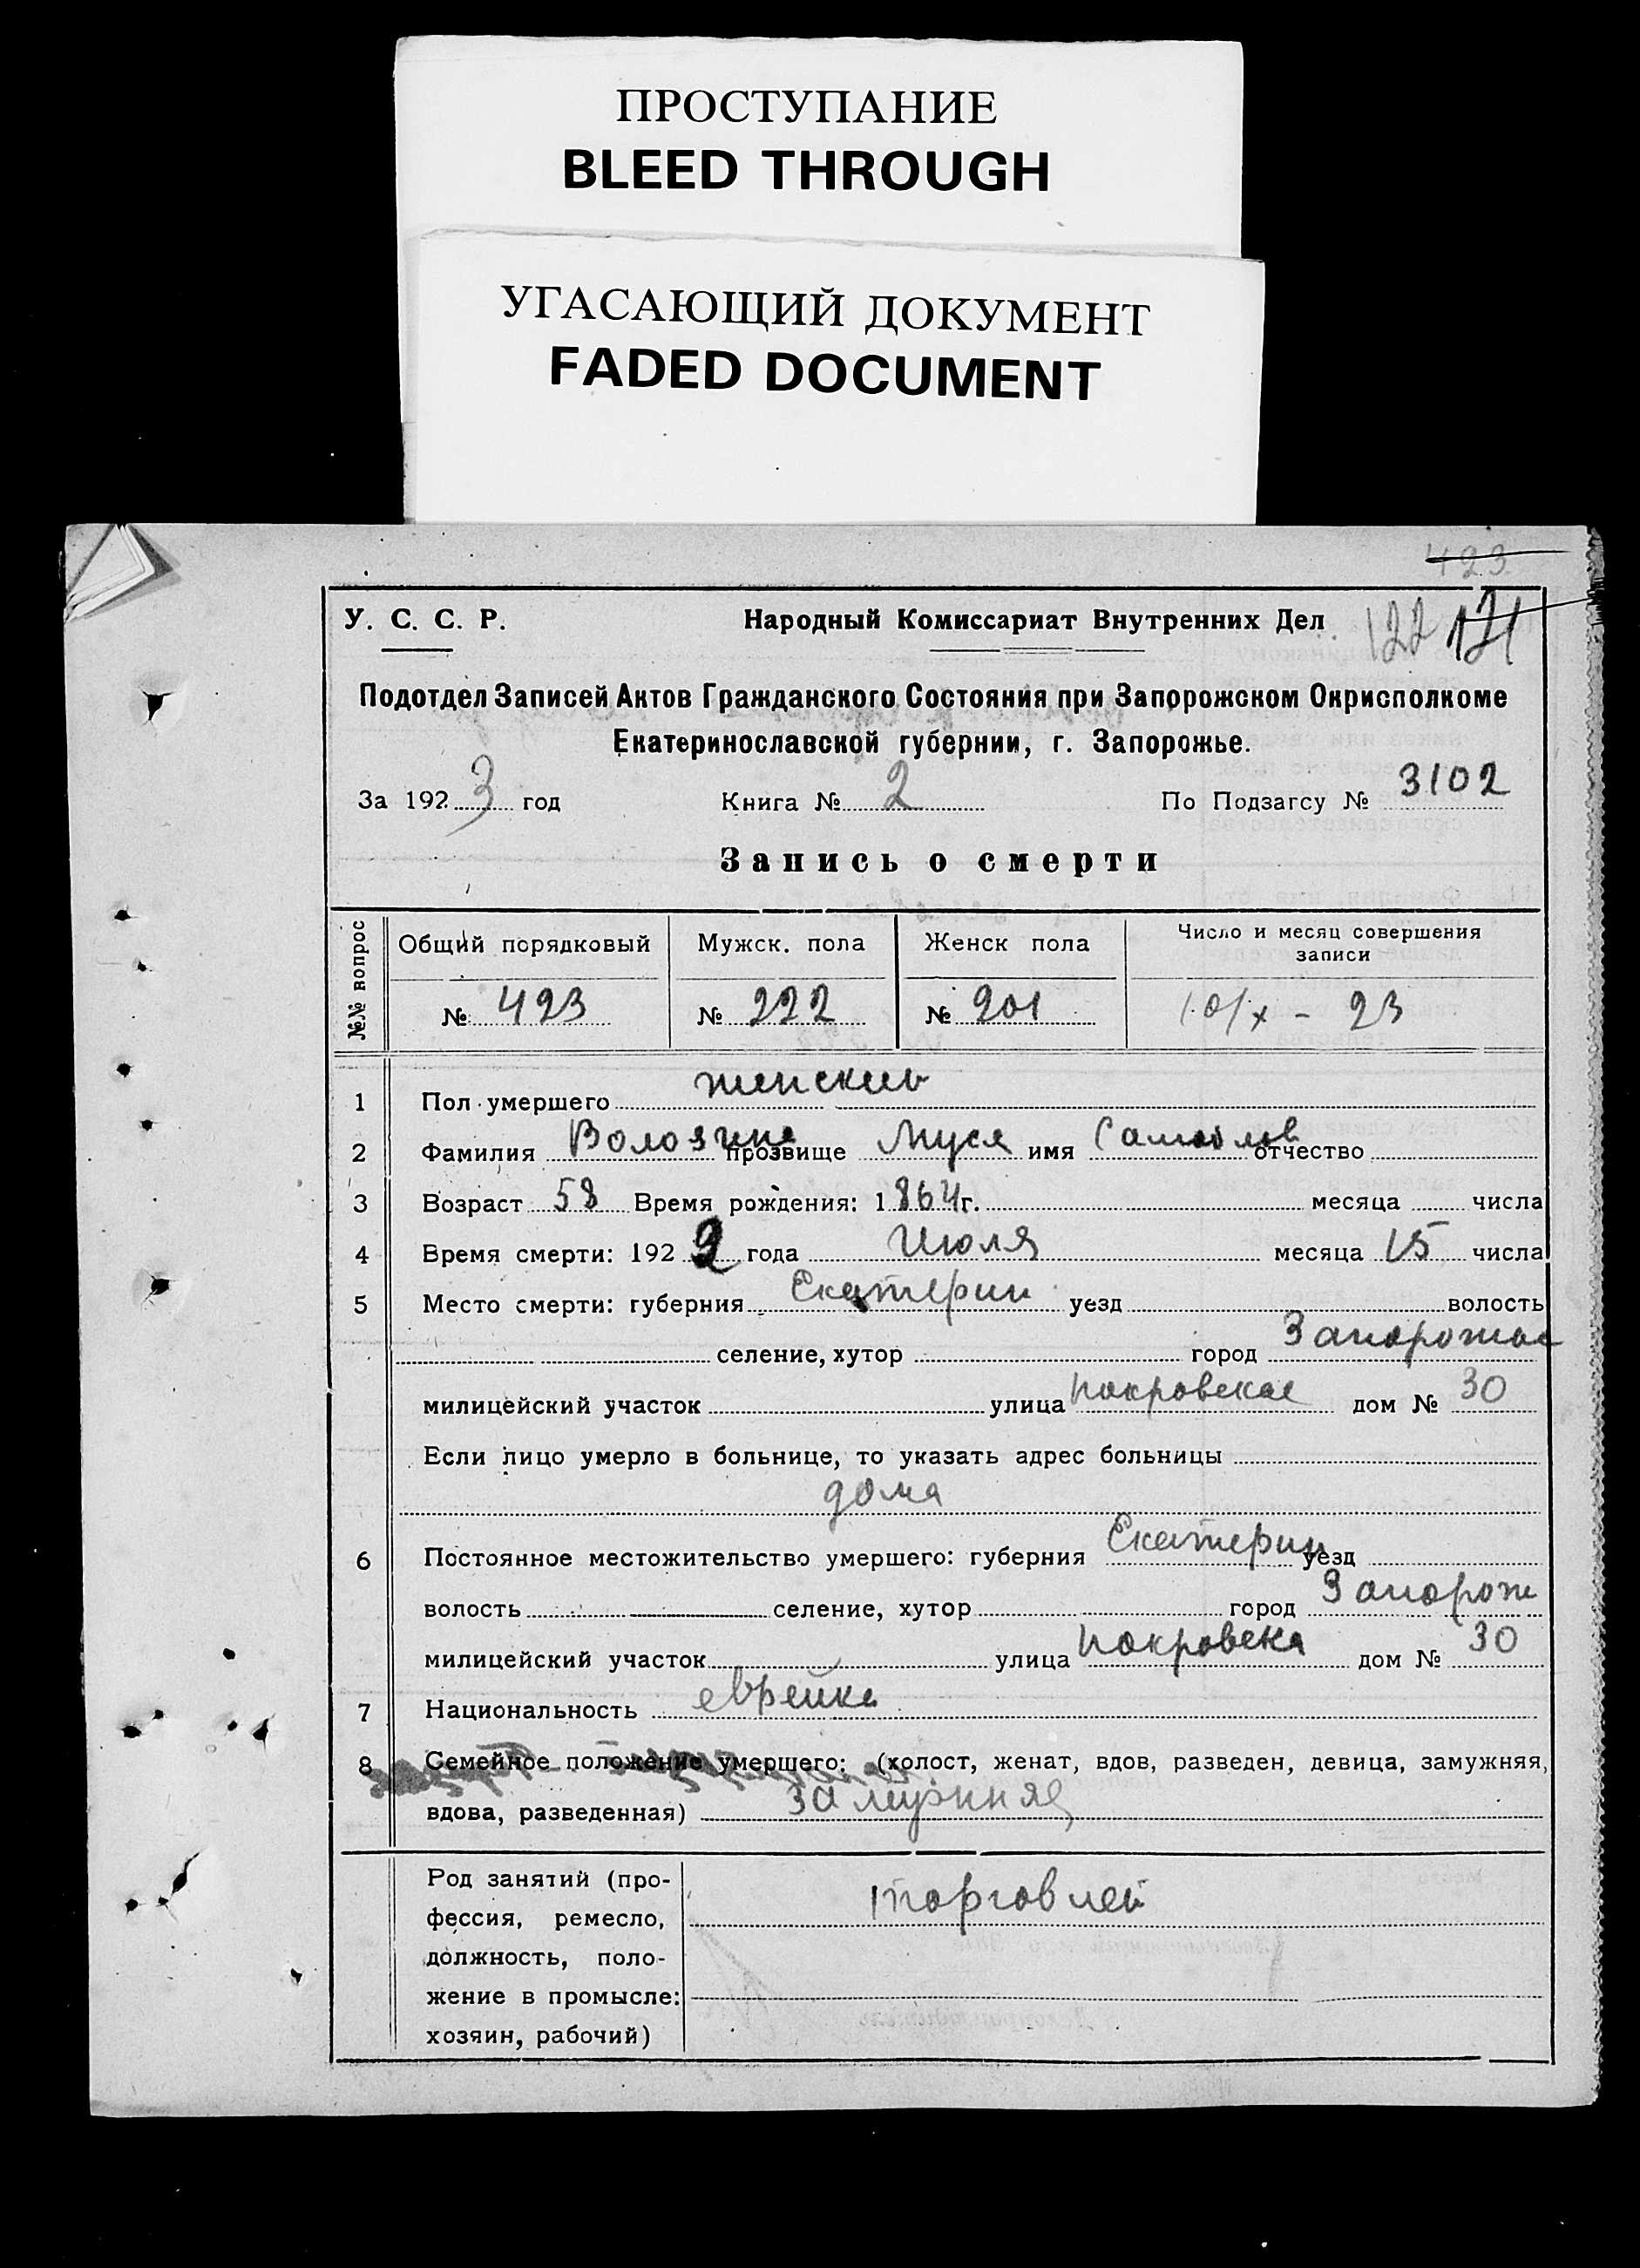 ПРОСТУПАНИЕ
BLEED THROUGH
УГАСАЮЩИЙ ДОКУМЕНТ
FADED DOCUMENT
423
У. С. С. Р. Народный Комиссариат Внутренних Дел. 122 121
Подотдел Записей Актов Гражданского Состояния при Запорожском Окрисполкоме
Екатеринославской губернии, г. Запорожье.
За 1923 год Книга № 2 По Подзагсу № 3102
Запись о смерти
№№ вопрос Общий порядковый Мужск. пола Женск пола Число и месяц совершения
записи
№ 423 № 222 № 201 10/x - 23
1 Пол умершего женский
2 Фамилия Волозина прозвище Муся имя Самойлов отчество
3 Возраст 58 Время рождения: 1864г. месяца числа
4 Время смерти: 1922 года Июля месяца 15 числа
5 Место смерти: губерния Екатерин уезд волость
селение, хутор город Запорожье
милицейский участок улица Покровская дом № 30
Если лицо умерло в больнице, то указать адрес больницы
дома
6 Постоянное местожительство умершего: губерния Екатерин уезд
волость селение, хутор город Запорож
милицейский участок улица Покровска дом № 30
7 Национальность еврейка
8 Семейное положение умершего: (холост, женат, вдов, разведен, девица, замужняя,
вдова, разведенная) замужняя
Род занятий (про-
фессия, ремесло, торговлей
должность, поло-
жение в промысле:
хозяин, рабочий)